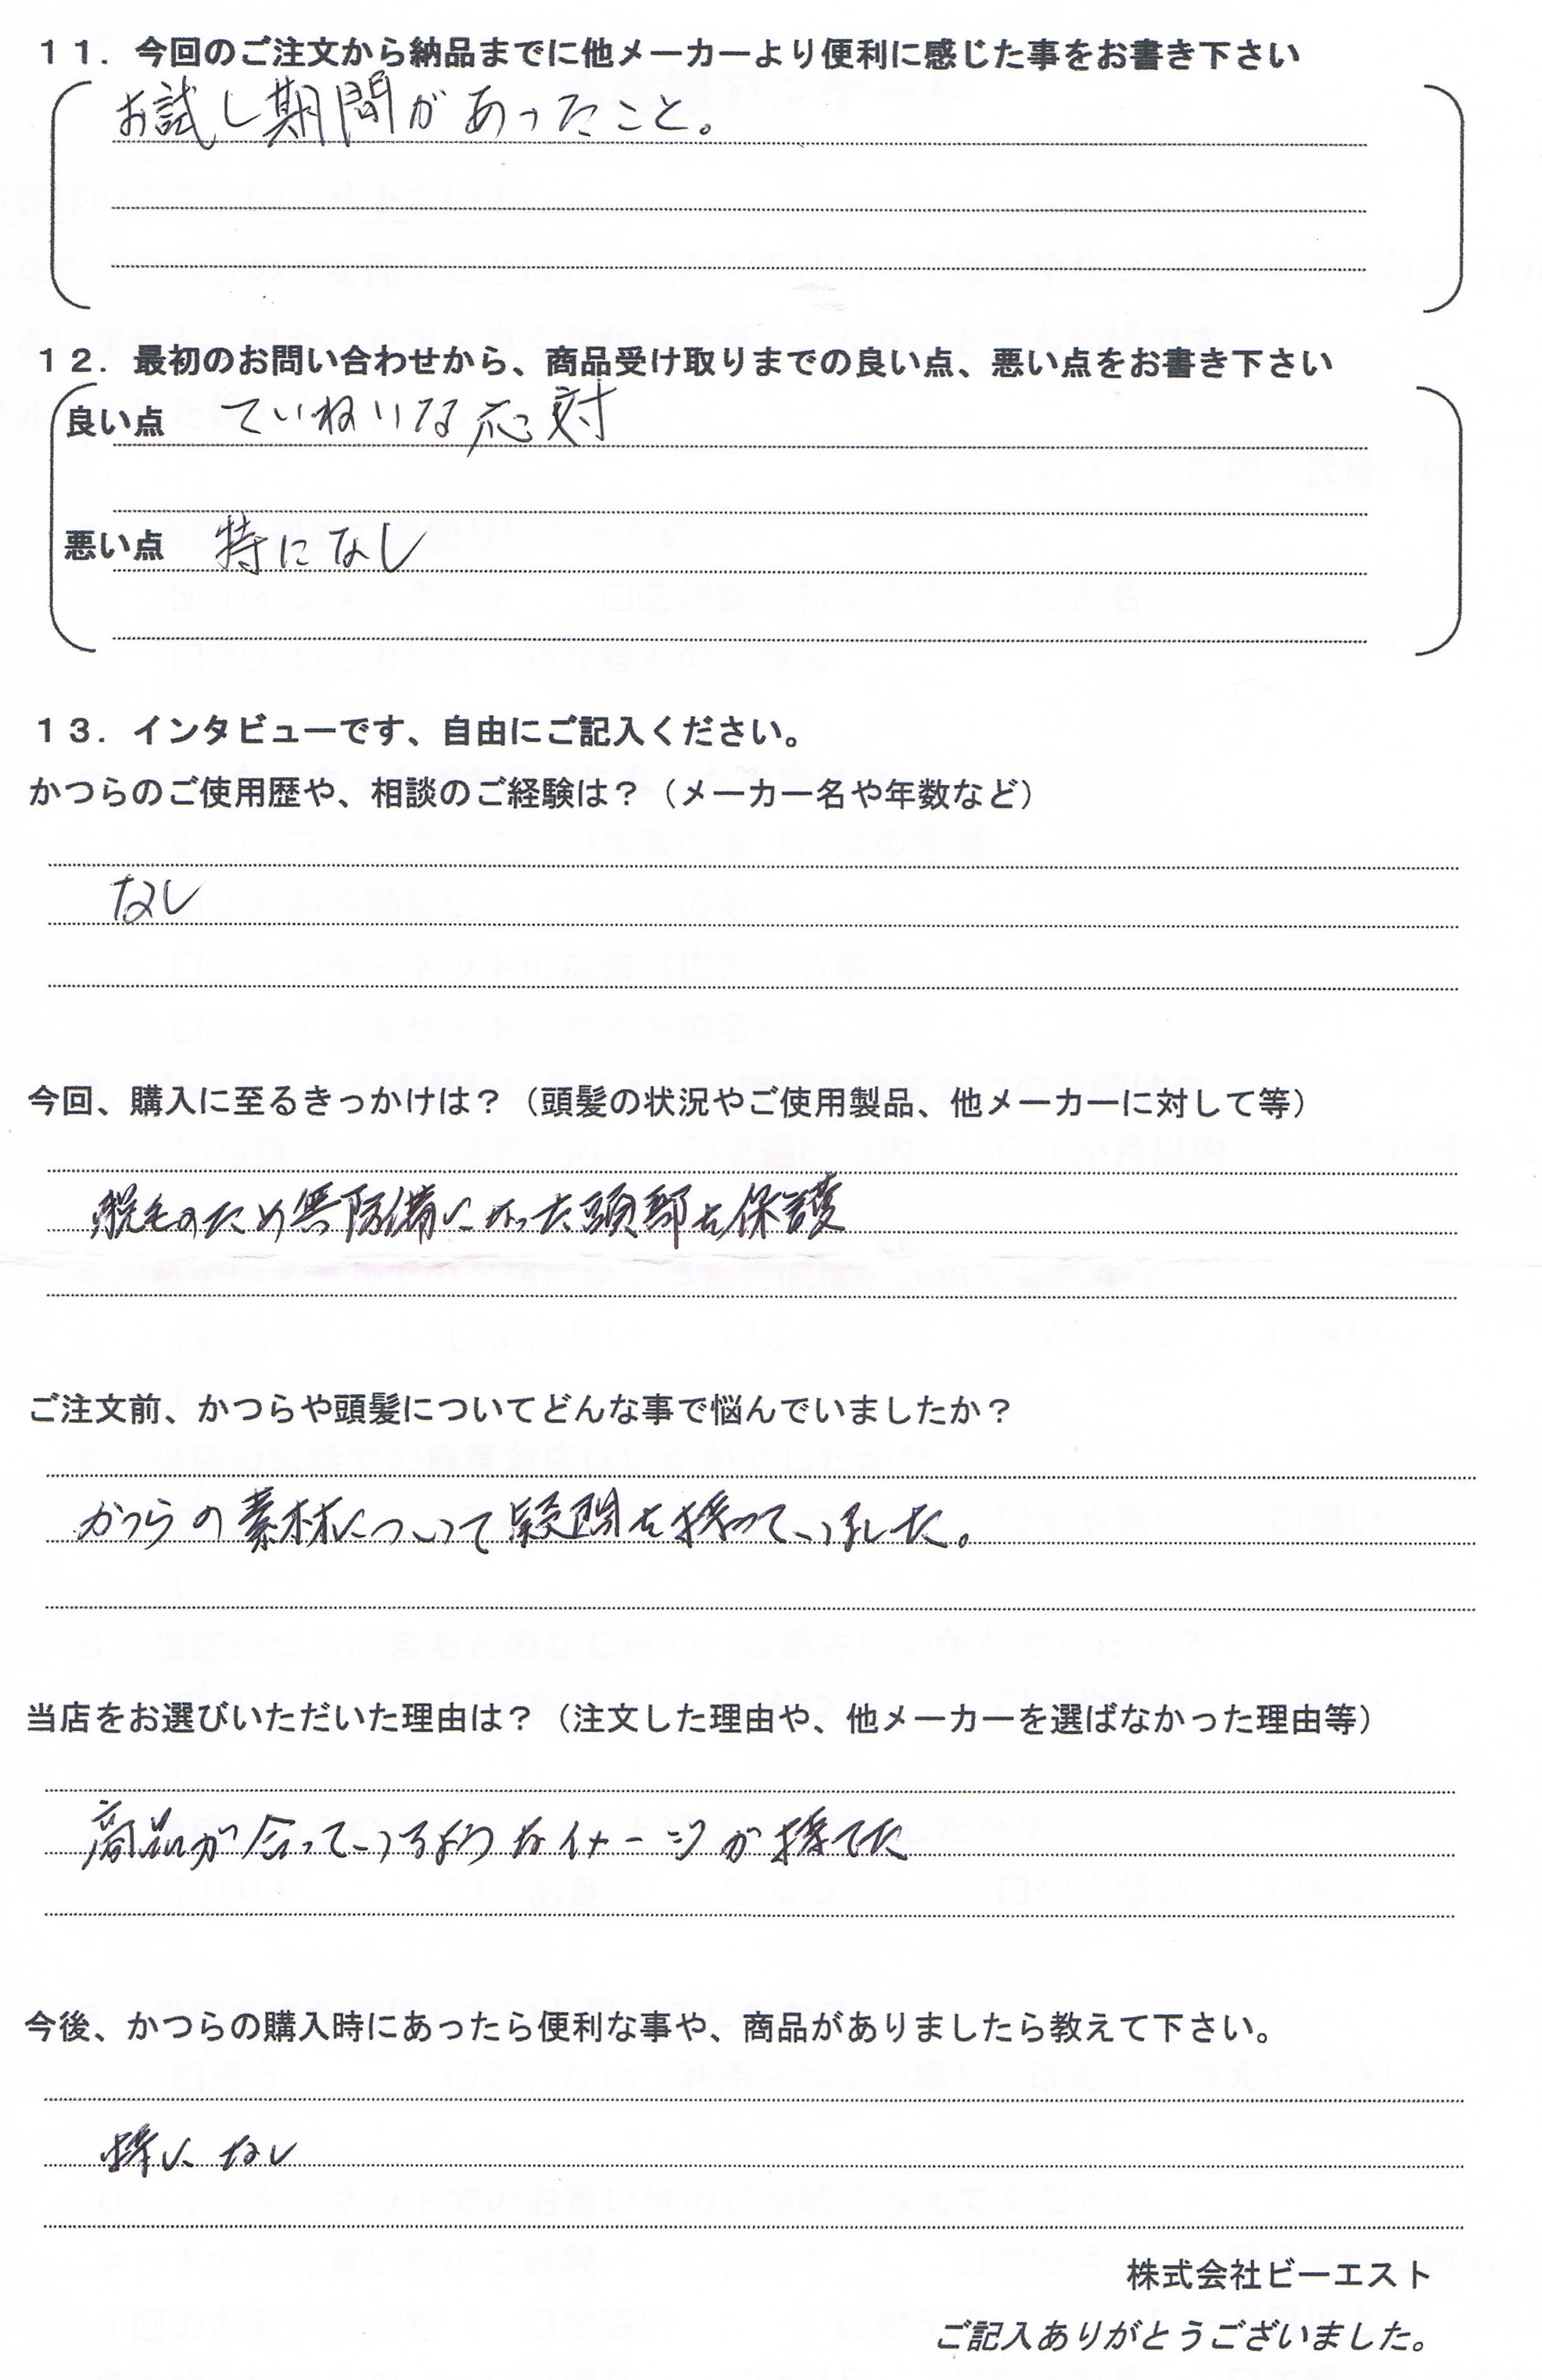 １１．今回のご注文から納品までに他メーカーより便利に感じた事をお書き下さい
お試し期間があったこと。
１２．最初のお問い合わせから、商品受け取りまでの良い点、悪い点をお書き下さい
良い点 ていねいな応対
悪い点 特になし
１３．インタビューです、自由にご記入ください。
かつらのご使用歴や、相談のご経験は？（メーカー名や年数など）
なし
今回、購入に至るきっかけは？（頭髪の状況やご使用製品、他メーカーに対して等）
脱毛のため無防備になった頭部を保護
ご注文前、かつらや頭髪についてどんな事で悩んでいましたか？
かつらの素材について疑問を持っていました。
当店をお選びいただいた理由は？（注文した理由や、他メーカーを選ばなかった理由等）
商品が合っているようなイメージが持てた
今後、かつらの購入時にあったら便利な事や、商品がありましたら教えて下さい。
特になし
株式会社ビーエスト
ご記入ありがとうございました。